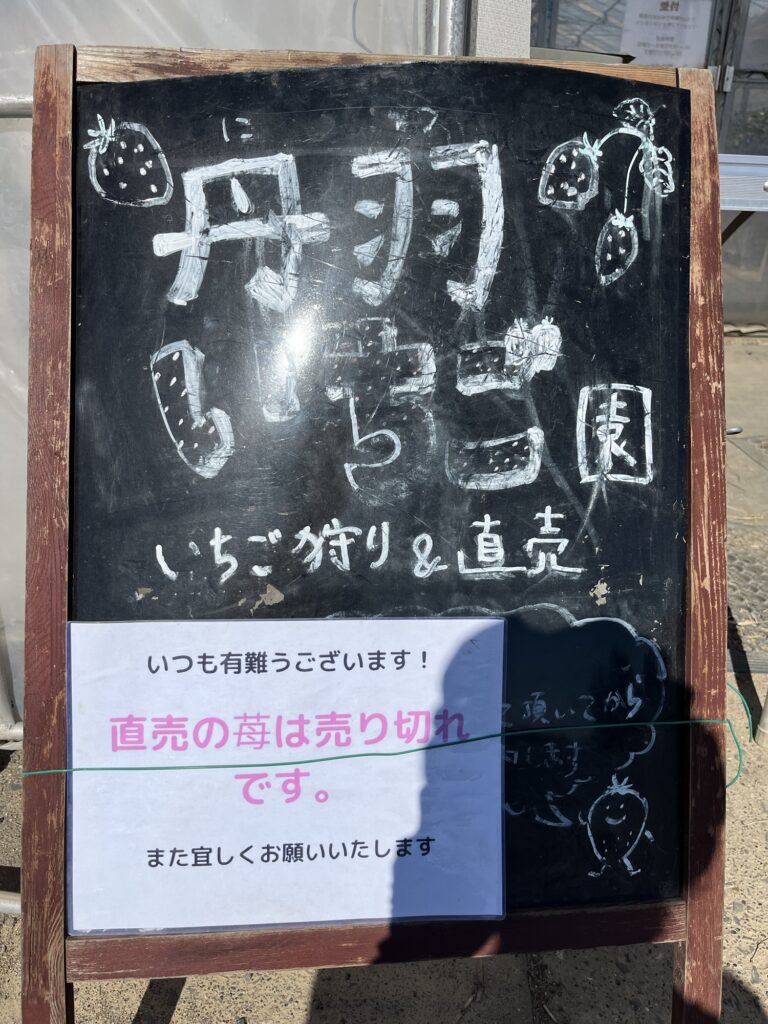 受付
に わ
丹羽
いちご園
いちご狩り&直売
いつも有難うございます！
直売の苺は売り切れ
です。
また宜しくお願いいたします
て頂いてから
します